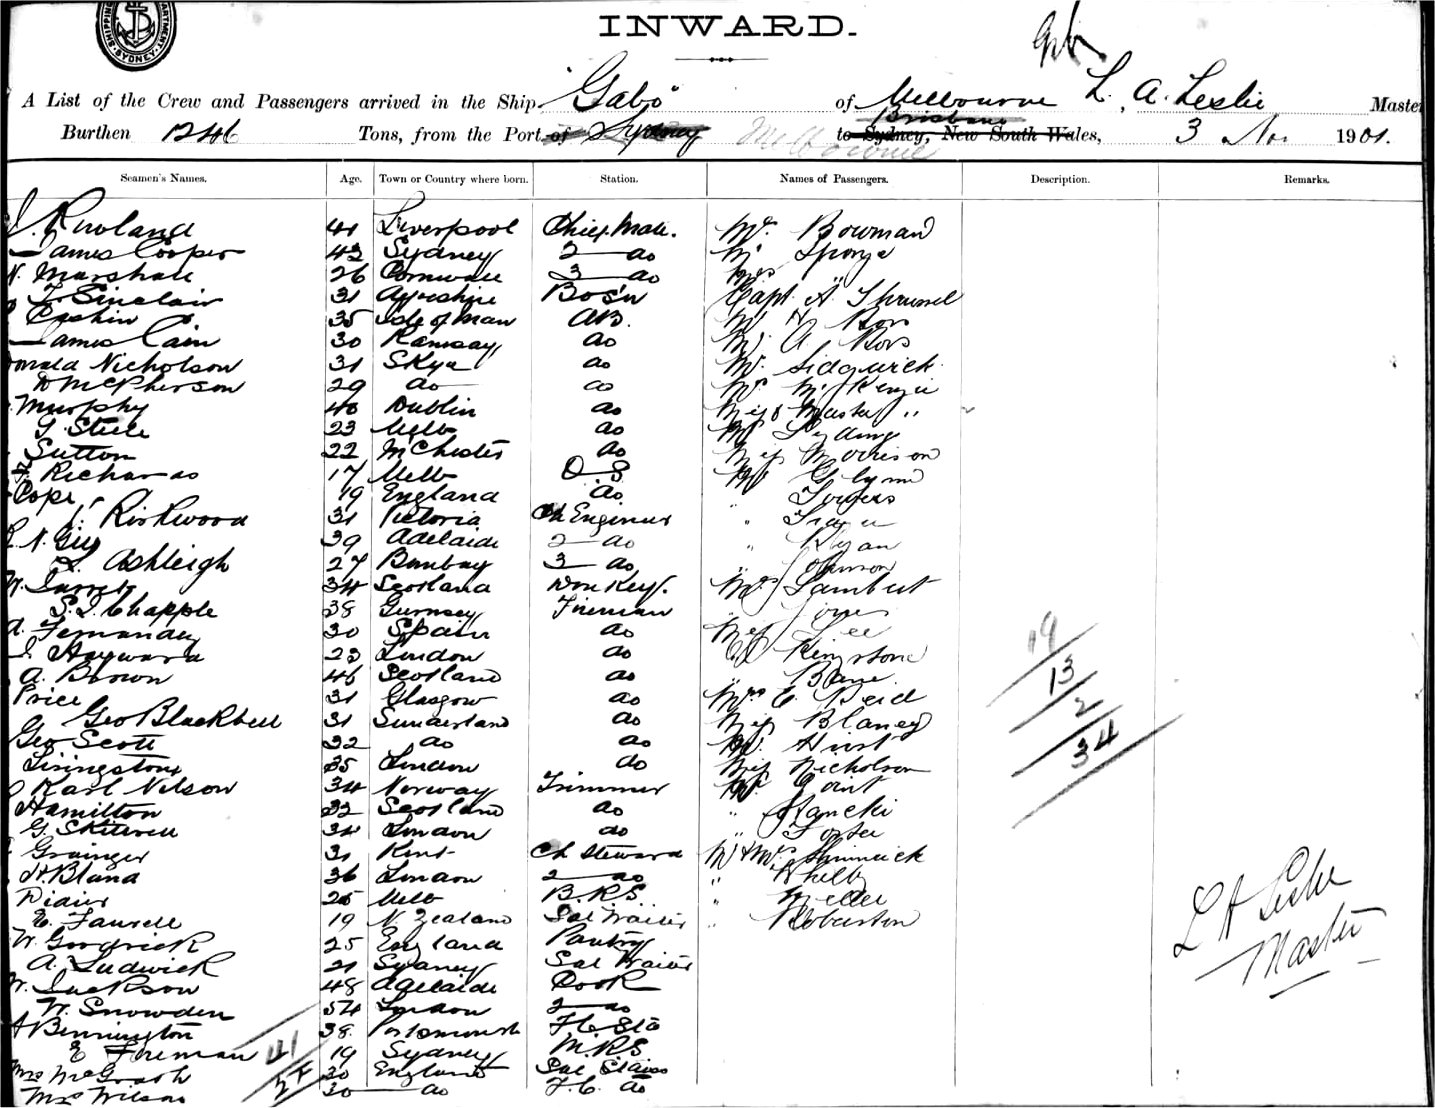 SHIPPING DEPARTMENT SYDNEY
INWARD.
A List of the Crew and Passengers arrived in the Ship "Gabo" of Melbourne L. A. Leslie Master
Burthen 1246 Tons, from the Port of Sydney Melbourne to Brisbane Sydney, New South Wales, 3 Nov 1901.
Seamen's Names. Age. Town or Country where born. Station. Names of Passengers. Description. Remarks.
J. Rowland 41 Liverpool Chief Mate. Mr. Bowman
James Cooper 43 Sydney 2 do Mr
N. Marshall 26 Cornwall 3 do Mrs "
Sinclair 31 Ayrshire Bos'n Capt. A.
35 Isle of Man AB. Mr H Bors
James Cain 30 Ramsay do Mr A Bors
Donald Nicholson 31 Skye do Mr. Sidgwick
D McPherson 29 do do Mrs McKenzie
Murphy 40 Dublin do Miss & Master "
G. Steele 23 Melb do Mr
Sutton 22 M'Chester do Miss Morrison
Richards 17 Melb O S Mr Glynn
Cope 19 England do
Kirkwood 31 Victoria Ch Engineer "
N. Gey 39 Adelaide 2 do " Ryan
Ashleigh 27 Bombay 3 do " Johnson
34 Scotland Donkey. Mrs Lambert
S. J. Chapple 38 Gurnsey Fireman Jones
A. Fernandez 30 Spain do Miss Lee
J Hayward 23 London do Kingstone
A. Brown 46 Scotland do "
Price 31 Glasgow do Mrs E Reid
Geo Blackbell 31 Sunderland do Miss Blaney
Geo Scott 32 do do Mr. Hurst
Livingstone 35 London do Miss Nicholson
Karl Nelson 34 Norway Trimmer Mr
Hamilton 32 Scotland do "
G. Skitrell 34 London do " Foster
Grainger 31 Kent Ch Steward Mr & Mrs
H Bland 36 London 2 do "
Didier 25 Melb B.R.S. "
E. Fawell 19 N. Zealand Sal Waiter " Robertson
W. Goodrick 25 England Pantry
A. Ludwick 21 Sydney Sal Waiter
W. Jackson 48 Adelaide Cook
W. Snowden 54 London 2 do
A Bennington 38. Portsmouth F C Std
E Foreman 19 Sydney M.R.S
Mrs McGrath 30 England Sal Stdss
Mrs Wilson 30 do F.C. do
41
2 F
19
13
2
34
L A Leslie
Master